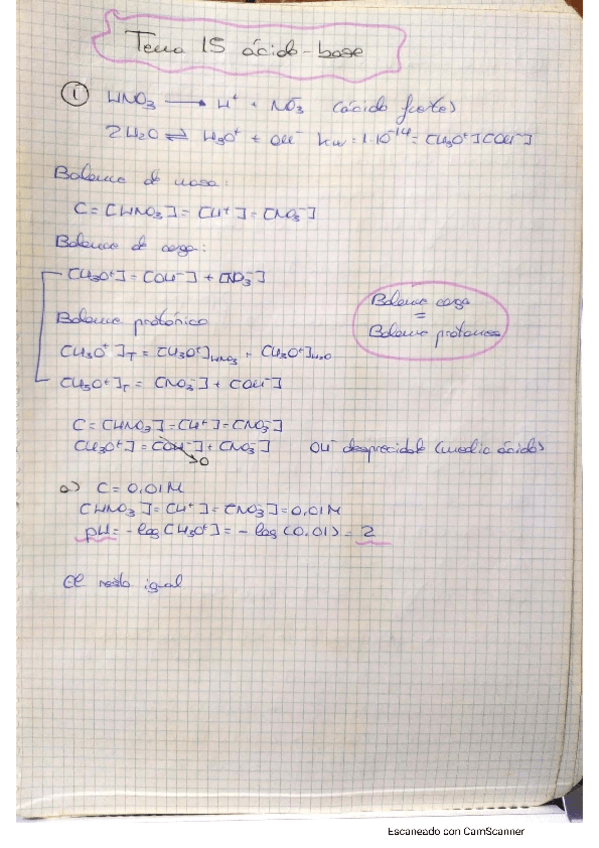 Tema 15 ácido-base
① HNO₃ ⟶ H⁺ + NO₃⁻ (ácido fuerte)
2H₂O ⇌ H₃O⁺ + OH⁻ Kw = 1·10⁻¹⁴ = [H₃O⁺][OH⁻]
Balance de masa:
C = [HNO₃] = [H⁺] = [NO₃⁻]
Balance de carga:
[H₃O⁺] = [OH⁻] + [NO₃⁻]
Balance carga
=
Balance protónico
Balance protónico
[H₃O⁺]T = [H₃O⁺]HNO₃ + [H₃O⁺]H₂O
[H₃O⁺]T = [NO₃⁻] + [OH⁻]
C = [HNO₃] = [H⁺] = [NO₃⁻]
[H₃O⁺] = [OH⁻] + [NO₃⁻] OH⁻ despreciable (medio ácido)
→0
a) C = 0,01M
[HNO₃] = [H⁺] = [NO₃⁻] = 0,01M
pH = -log[H₃O⁺] = -log(0.01) = 2
El resto igual
Escaneado con CamScanner